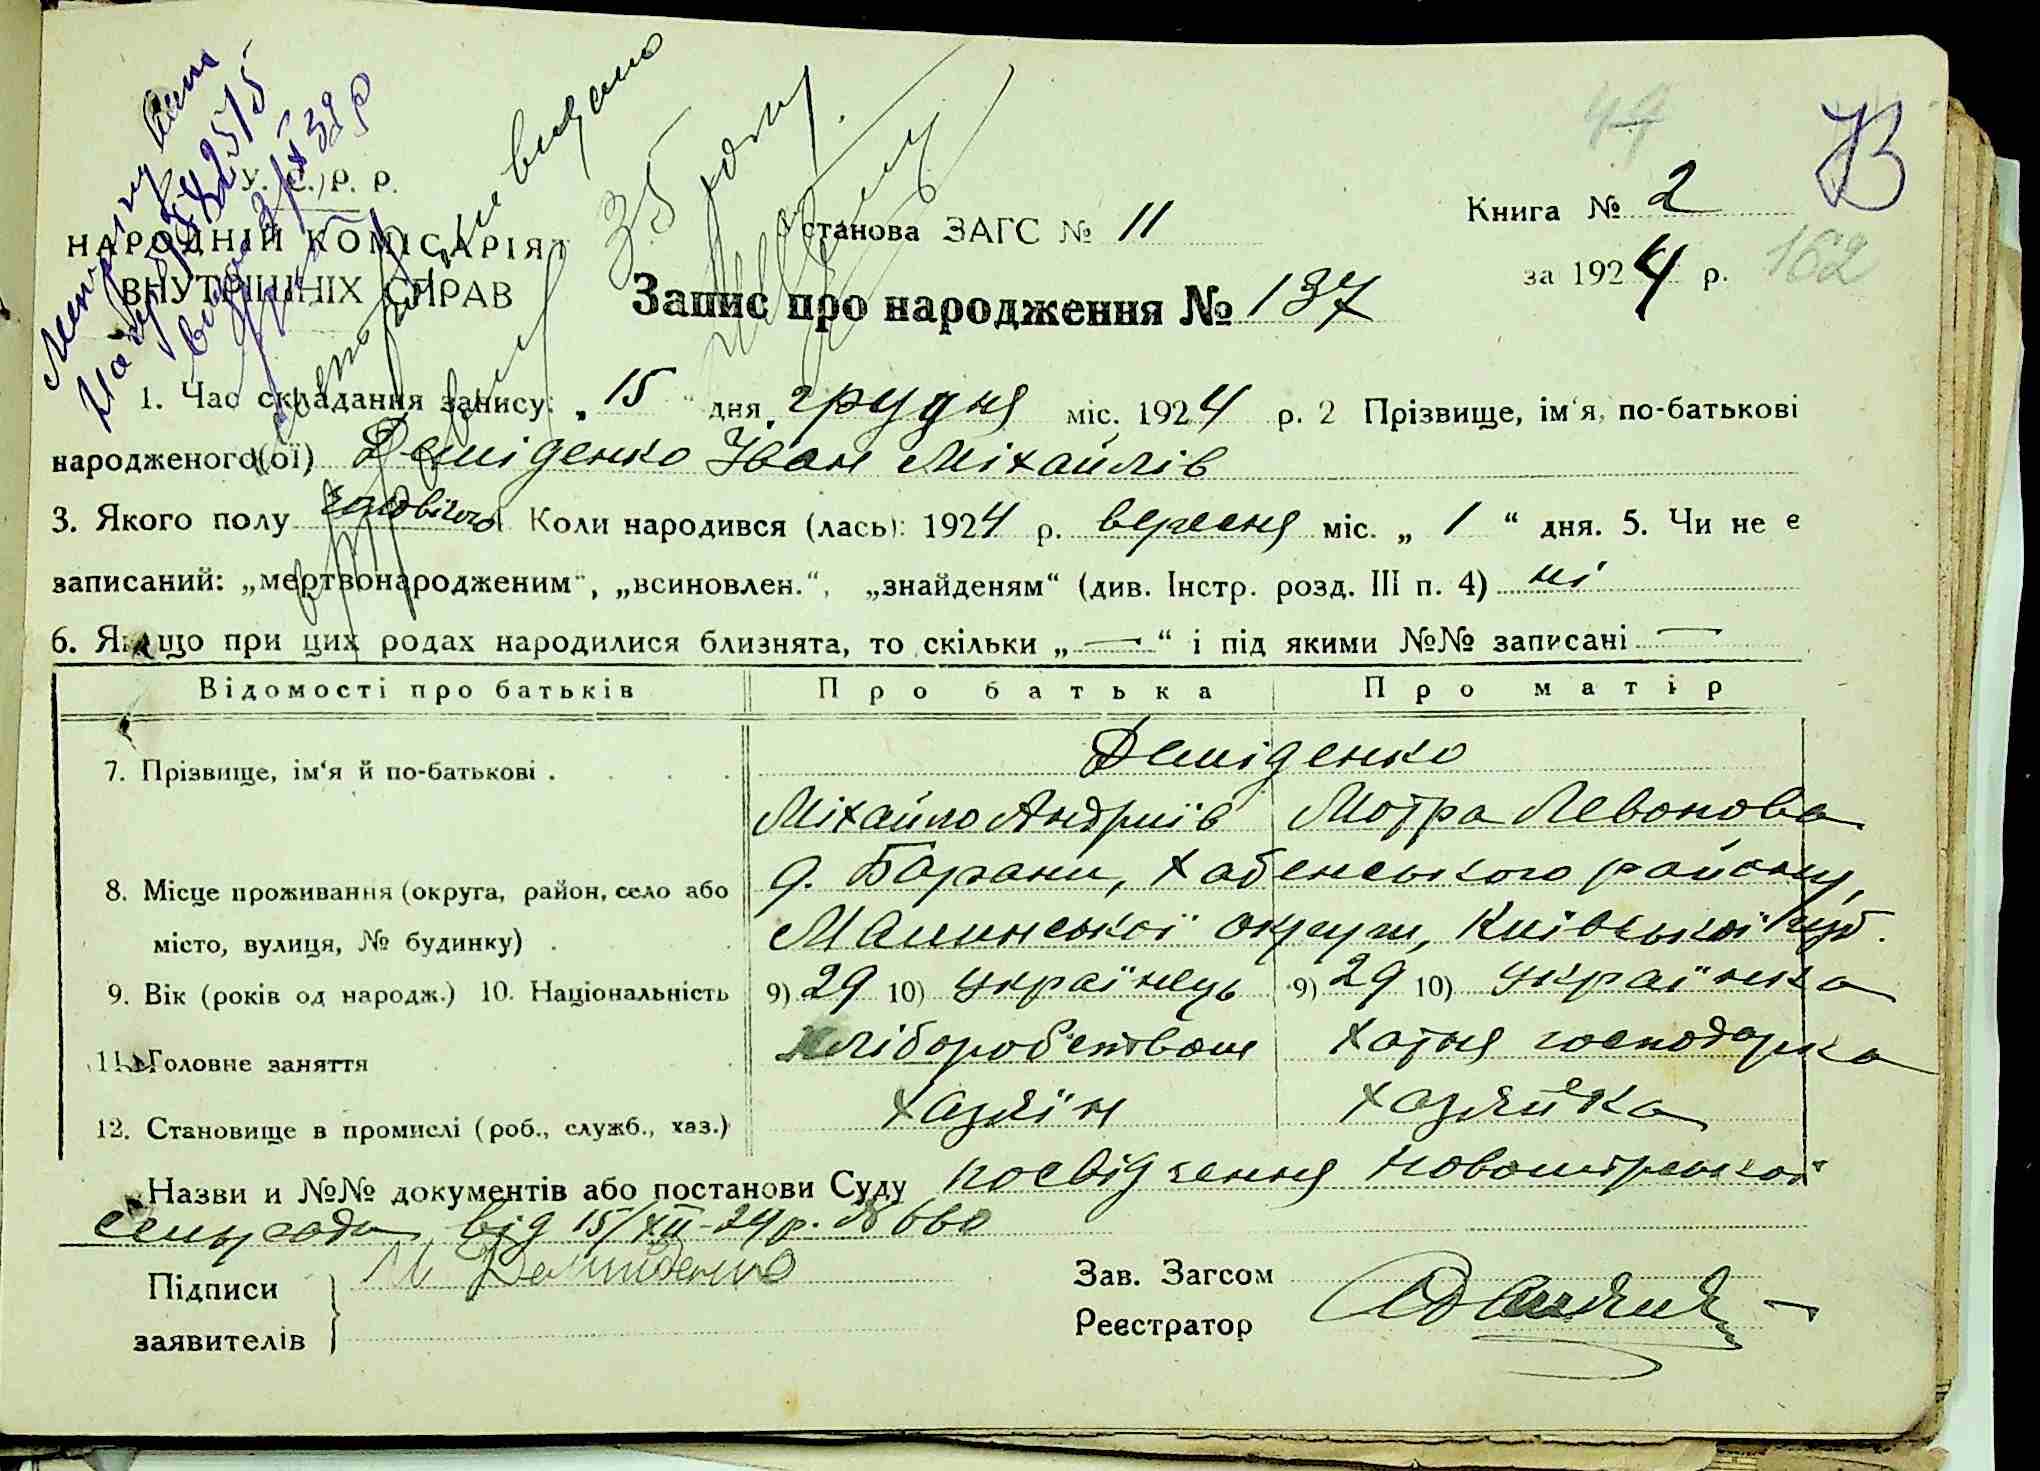 44
В
162
У. С. Р. Р.
НАРОДНІЙ КОМІСАРІЯТ
ВНУТРІШНІХ СПРАВ
Метрику
видано
35 року
Установа ЗАГС № 11
Книга № 2
за 1924 р.
Запис про народження № 137
1. Час складання запису: „ 15 " дня грудня міс. 1924 р. 2 Прізвище, ім'я, по-батькові
народженого(ої) Деміденко Іван Міхайлів
3. Якого полу чоловічого Коли народився (лась): 1924 р. вересня міс. „ 1 “ дня. 5. Чи не є
записаний: „мертвонародженим", „всиновлен.“, „знайденям“ (див. Інстр. розд. III п. 4) ні
6. Якщо при цих родах народилися близнята, то скільки „ — “ і під якими №№ записані —
Відомості про батьків Про батька Про матір
7. Прізвище, ім'я й по-батькові . Деміденко
Міхайло Андріїв Мотра Левонова
8. Місце проживання (округа, район, село або д. Барани, Хабенського району,
місто, вулиця, № будинку) . Малинської округи, Київської губ.
9. Вік (років од народж.) 10. Національність 9) 29 10) українець 9) 29 10) українка
11. Головне заняття хліборобством хатня господарка
12. Становище в промислі (роб., служб., хаз.) хазяїн хазяйка
Назви и №№ документів або постанови Суду посвідчення
сельради від 15/XII-24 р. № 660
Підписи М Демиденко
заявителів
Зав. Загсом
Реєстратор